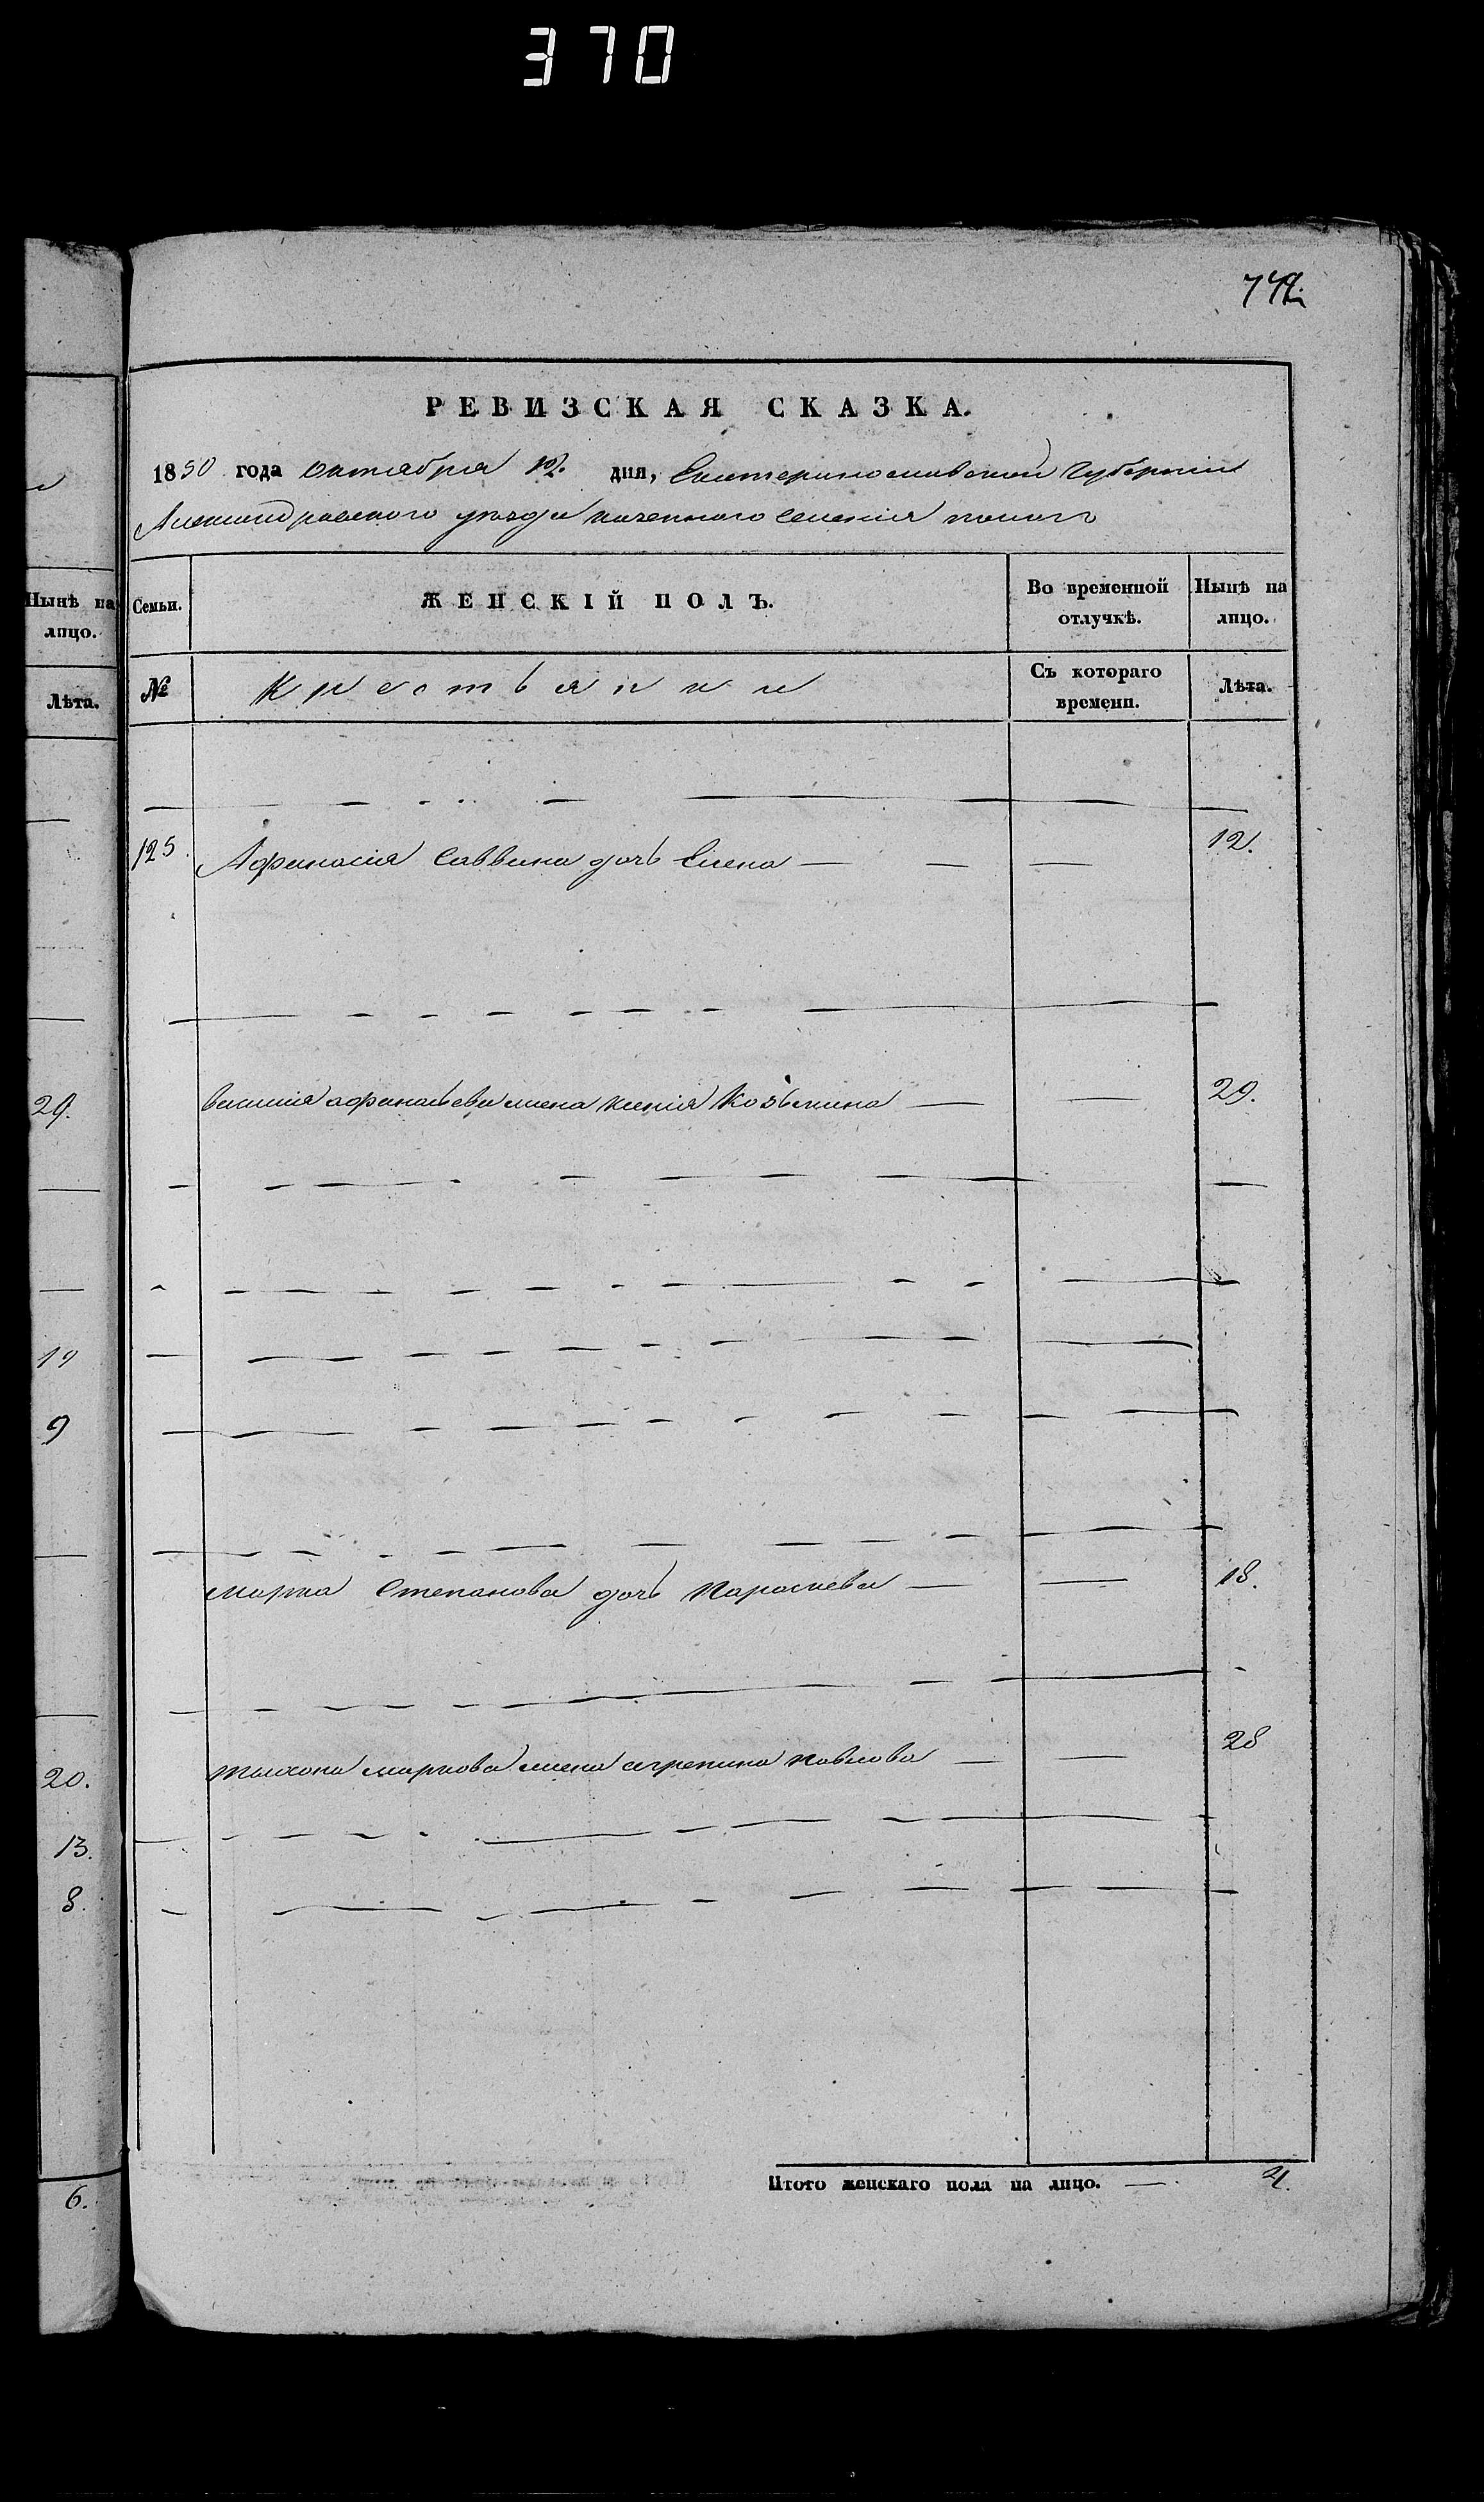 370
РЕВИЗСКАЯ СКАЗКА.
1850 года октября 12. дня, Екатеринославской Губерніи
Александровского уезда казенного селенія
Нынѣ на лицо.
Лѣта.
29.
19
9
20.
13.
8.
6.
Семьи. ЖЕНСКІЙ ПОЛЪ. Во временной отлучкѣ. Нынѣ на лицо.
№ Крестьянки Съ котораго времени. Лѣта.
125. Афанасія Саввина дочь Елена — — — 12.
Василія афанасьева жена Ксенія Козьмина — — 29.
Марка Степанова дочь Параскева — — 18.
Тихона Маркова жена агрепина Павлова — — 28
Итого женскаго пола на лицо. — 4.